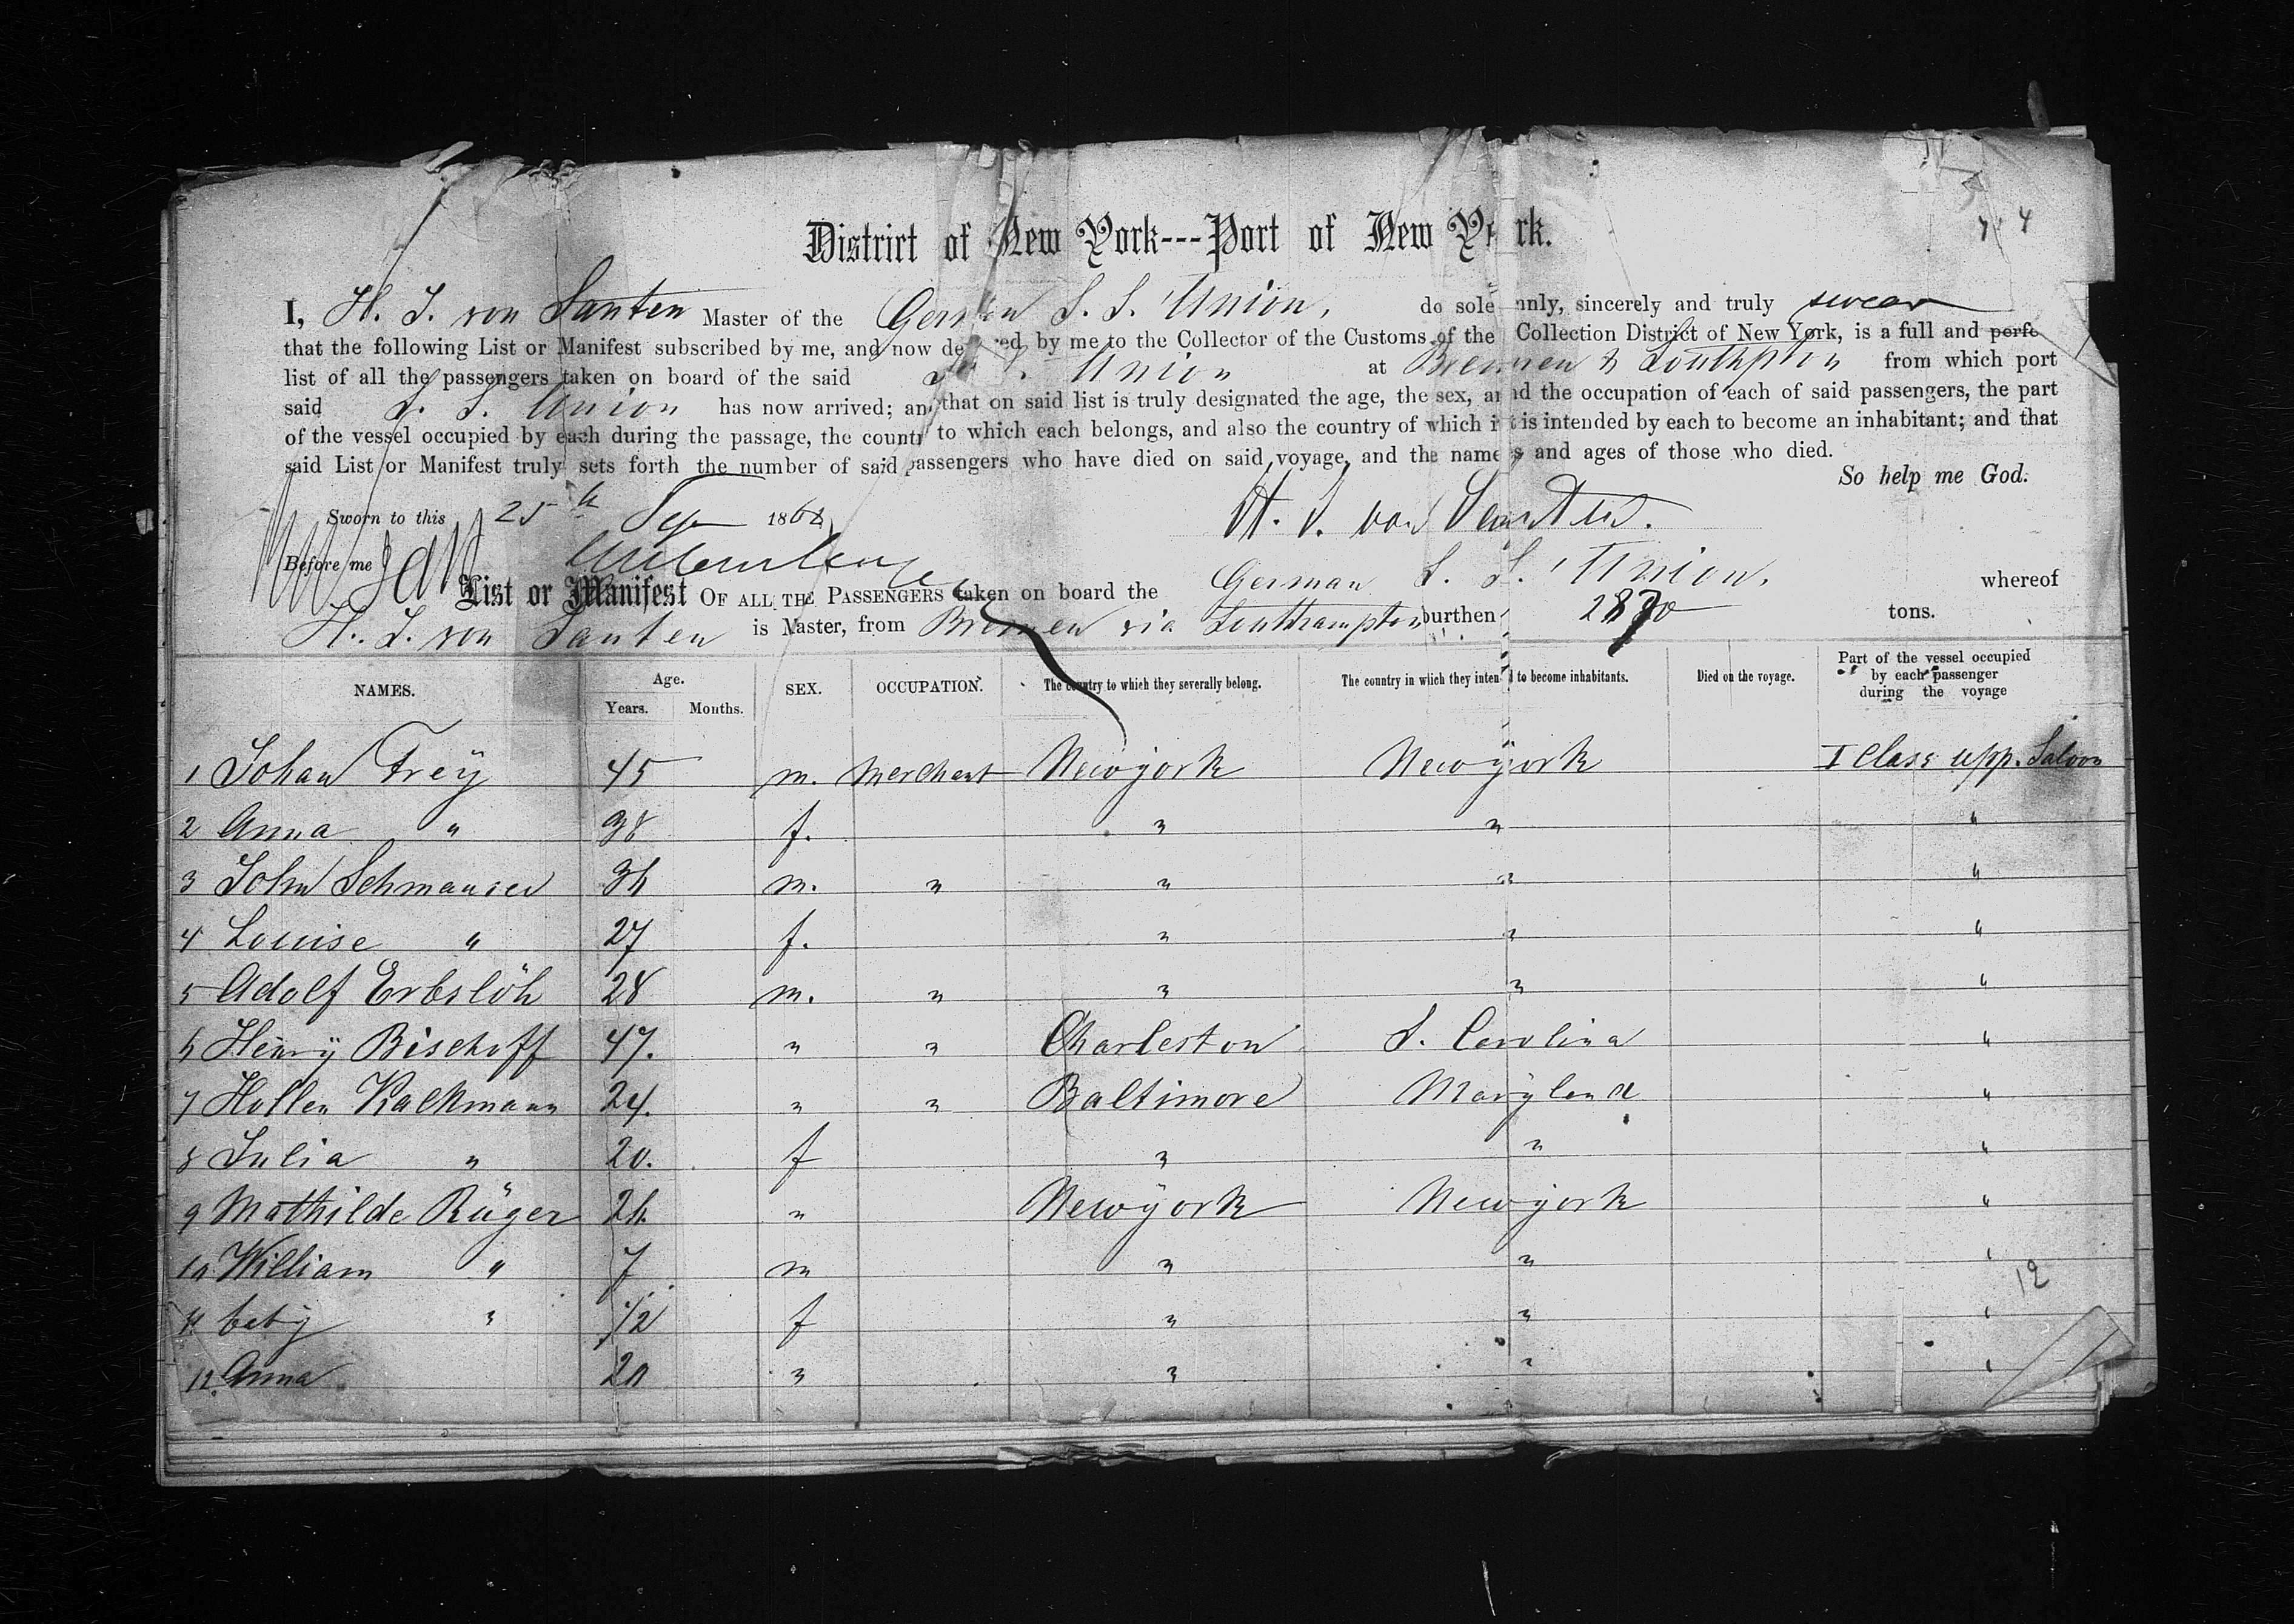 7 4
District of New York---Port of New York.
I, H. J. von Santen Master of the German S. S. Union, do solemnly, sincerely and truly swear
that the following List or Manifest subscribed by me, and now delivered by me to the Collector of the Customs of the Collection District of New York, is a full and perfe
list of all the passengers taken on board of the said S. S. Union at Bremen & Southpton from which port
said S. S. Union has now arrived; and that on said list is truly designated the age, the sex, and the occupation of each of said passengers, the part
of the vessel occupied by each during the passage, the country to which each belongs, and also the country of which it is intended by each to become an inhabitant; and that
said List or Manifest truly sets forth the number of said passengers who have died on said voyage, and the names and ages of those who died.
So help me God.
Sworn to this 25th Sep 1868 H. J. von Santen.
Before me
List or Manifest OF ALL THE PASSENGERS taken on board the German S. S. Union, whereof
H. J. von Santen is Master, from Bremen via Southampton burthen 2870 tons.
NAMES. Age. Years. Months. SEX. OCCUPATION. The country to which they severally belong. The country in which they intend to become inhabitants. Died on the voyage. Part of the vessel occupied by each passenger during the voyage
1 Johan Frey 45 m. Merchant Newyork Newyork I Class upp. Saloon
2 Anna " 38 f. " " "
3 John Schmauser 36 m. " " " "
4 Louise " 27 f. " " "
5 Adolf Erbslöh 28 m. " " " "
6 Henry Bischoff 47. " " Charleston S. Carolina "
7 Hollen Kalkmann 24. " " Baltimore Maryland "
8 Julia " 20. f " " "
9 Mathilde Rüger 26. " Newyork Newyork "
10 William " 7 m " " "
11 baby " 1/2 f " " "
12. Anna 20 " " " "
12